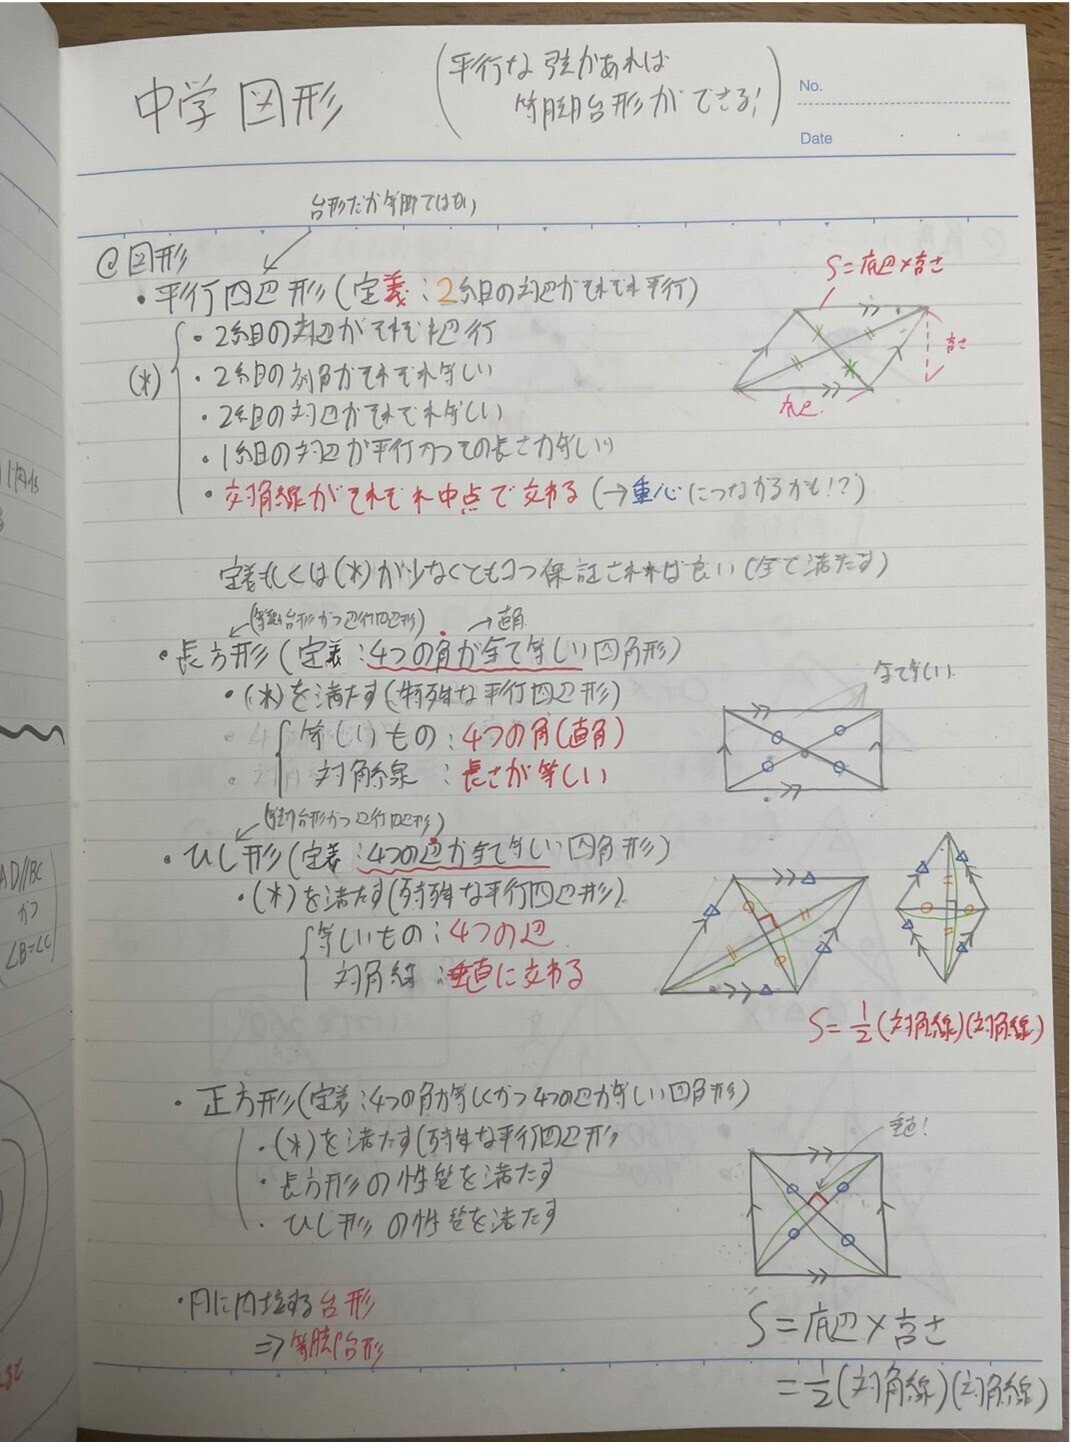 中学 図形
(平行な弦があれば
等脚台形ができる!)
No.
Date
台形だが等脚ではない
@図形
・平行四辺形(定義:2組の対辺がそれぞれ平行)
(*)
・2組の対辺がそれぞれ平行
・2組の対角がそれぞれ等しい
・2組の対辺がそれぞれ等しい
・1組の対辺が平行かつその長さが等しい
・対角線がそれぞれ中点で交わる(→重心につながるかも!?)
S=底辺×高さ
高さ
底辺
定義もしくは(*)が少なくとも1つ保証されれば良い(全て満たす)
(等脚台形かつ平行四辺形)
→直角
・長方形(定義:4つの角が全て等しい四角形)
・(*)を満たす(特殊な平行四辺形)
等しいもの:4つの角(直角)
対角線:長さが等しい
全て等しい
(等脚台形かつ平行四辺形)
・ひし形(定義:4つの辺が全て等しい四角形)
・(*)を満たす(特殊な平行四辺形)
等しいもの:4つの辺
対角線:垂直に交わる
S=1/2(対角線)(対角線)
・正方形(定義:4つの角が等しくかつ4つの辺が等しい四角形)
・(*)を満たす(特殊な平行四辺形
・長方形の性質を満たす
・ひし形の性質を満たす
垂直!
・円に内接する台形
⇒等脚台形
S=底辺×高さ
=1/2(対角線)(対角線)
AD//BC
かつ
∠B=∠C